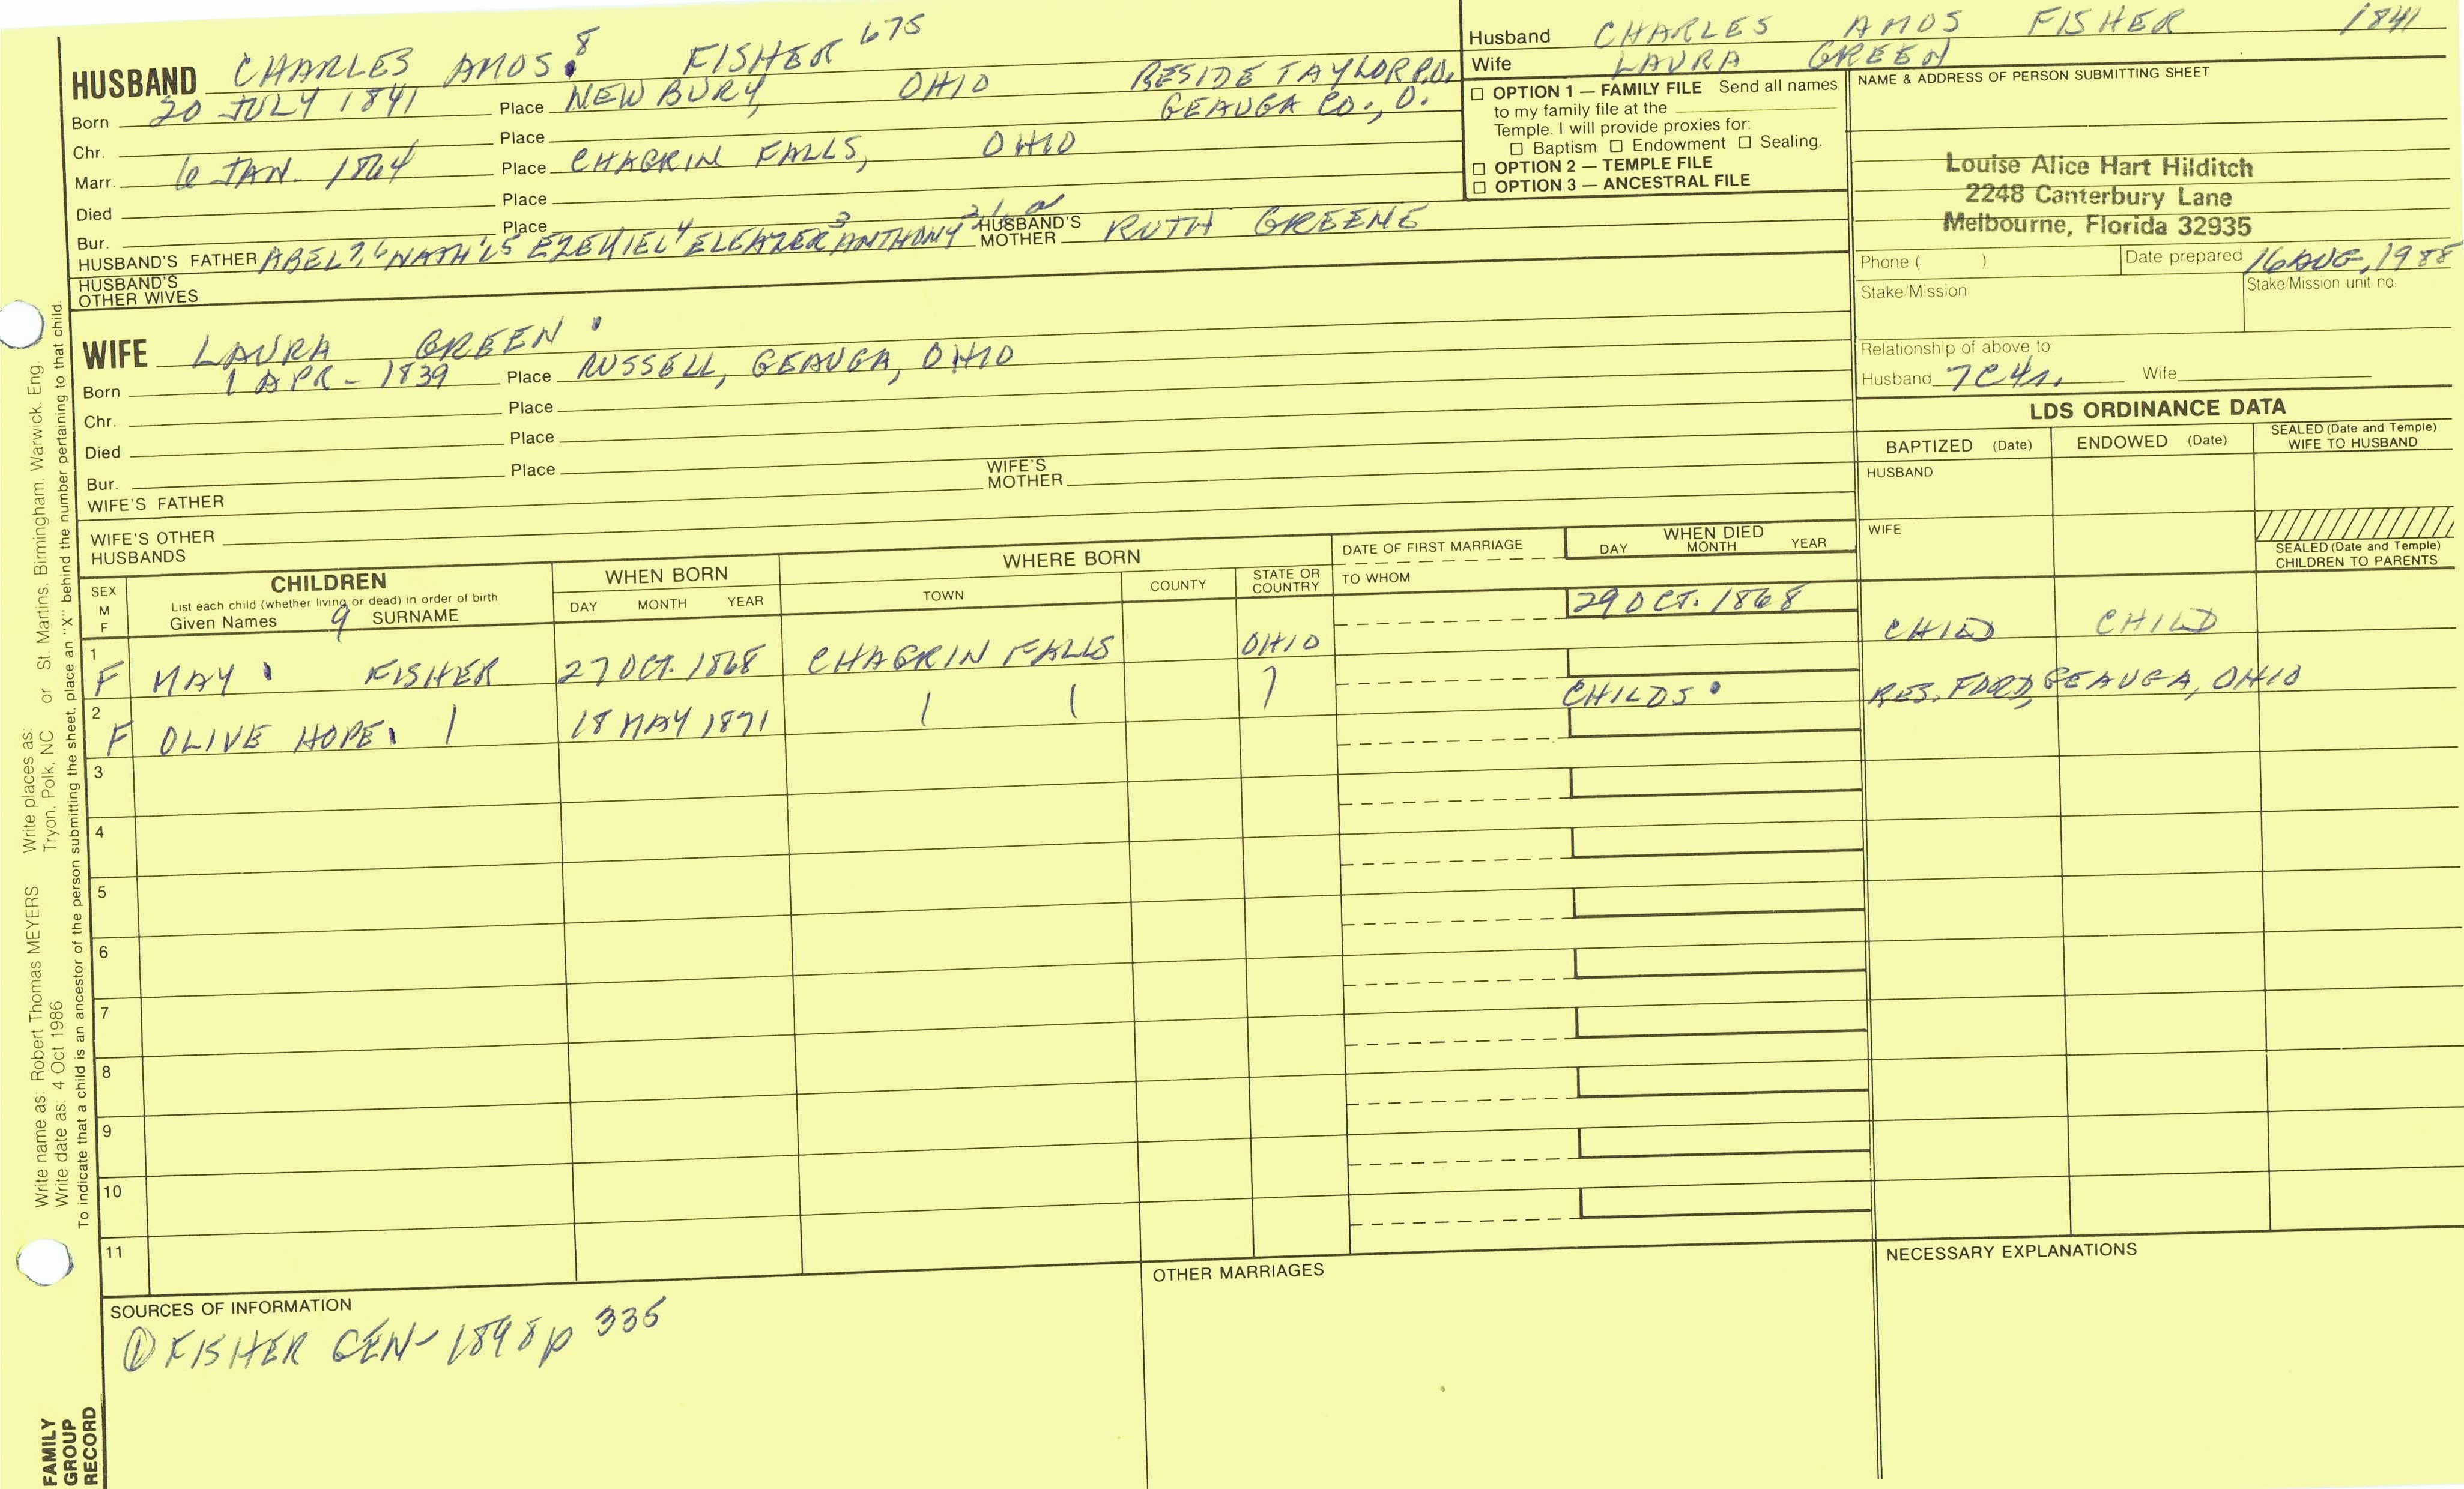 HUSBAND CHARLES AMOS 8 FISHER 675
Born 20 JULY 1841 Place NEWBURY, OHIO RESIDE TAYLOR P.O.
GEAUGA CO., O.
Chr. Place
Marr. 6 JAN. 1864 Place CHAGRIN FALLS, OHIO
Died Place
Bur. Place
HUSBAND'S FATHER ABEL 7, 6 NATH'L 5 EZEKIEL 4 ELEAZER 3 ANTHONY 2 HUSBAND'S MOTHER RUTH GREENE
HUSBAND'S
OTHER WIVES
WIFE LAURA GREEN
Born 1 APR - 1839 Place RUSSELL, GEAUGA, OHIO
Chr. Place
Died Place
Bur. Place
WIFE'S FATHER WIFE'S MOTHER
WIFE'S OTHER
HUSBANDS
Husband CHARLES AMOS FISHER 1841
Wife LAURA GREEN
☐ OPTION 1 — FAMILY FILE Send all names
to my family file at the
Temple. I will provide proxies for:
☐ Baptism ☐ Endowment ☐ Sealing.
☐ OPTION 2 — TEMPLE FILE
☐ OPTION 3 — ANCESTRAL FILE
NAME & ADDRESS OF PERSON SUBMITTING SHEET
Louise Alice Hart Hilditch
2248 Canterbury Lane
Melbourne, Florida 32935
Phone ( ) Date prepared 16 AUG, 1988
Stake/Mission Stake/Mission unit no.
Relationship of above to
Husband 7C4r. Wife
LDS ORDINANCE DATA
BAPTIZED (Date) ENDOWED (Date) SEALED (Date and Temple) WIFE TO HUSBAND
HUSBAND
WIFE
SEALED (Date and Temple)
CHILDREN TO PARENTS
SEX M F CHILDREN WHEN BORN WHERE BORN DATE OF FIRST MARRIAGE WHEN DIED
List each child (whether living or dead) in order of birth
Given Names 9 SURNAME DAY MONTH YEAR TOWN COUNTY STATE OR COUNTRY TO WHOM DAY MONTH YEAR
29 OCT. 1868
1 F MAY FISHER 27 OCT. 1868 CHAGRIN FALLS OHIO CHILD CHILD
2 F OLIVE HOPE 18 MAY 1871 CHILDS RES. FORD, GEAUGA, OHIO
3
4
5
6
7
8
9
10
11
SOURCES OF INFORMATION
① FISHER GEN- 1898 p 335
OTHER MARRIAGES
NECESSARY EXPLANATIONS
FAMILY
GROUP
RECORD
Write name as: Robert Thomas MEYERS Write places as: or St. Martins. Birmingham. Warwick. Eng.
Write date as: 4 Oct 1986 Tryon, Polk, NC
To indicate that a child is an ancestor of the person submitting the sheet, place an "X" behind the number pertaining to that child.